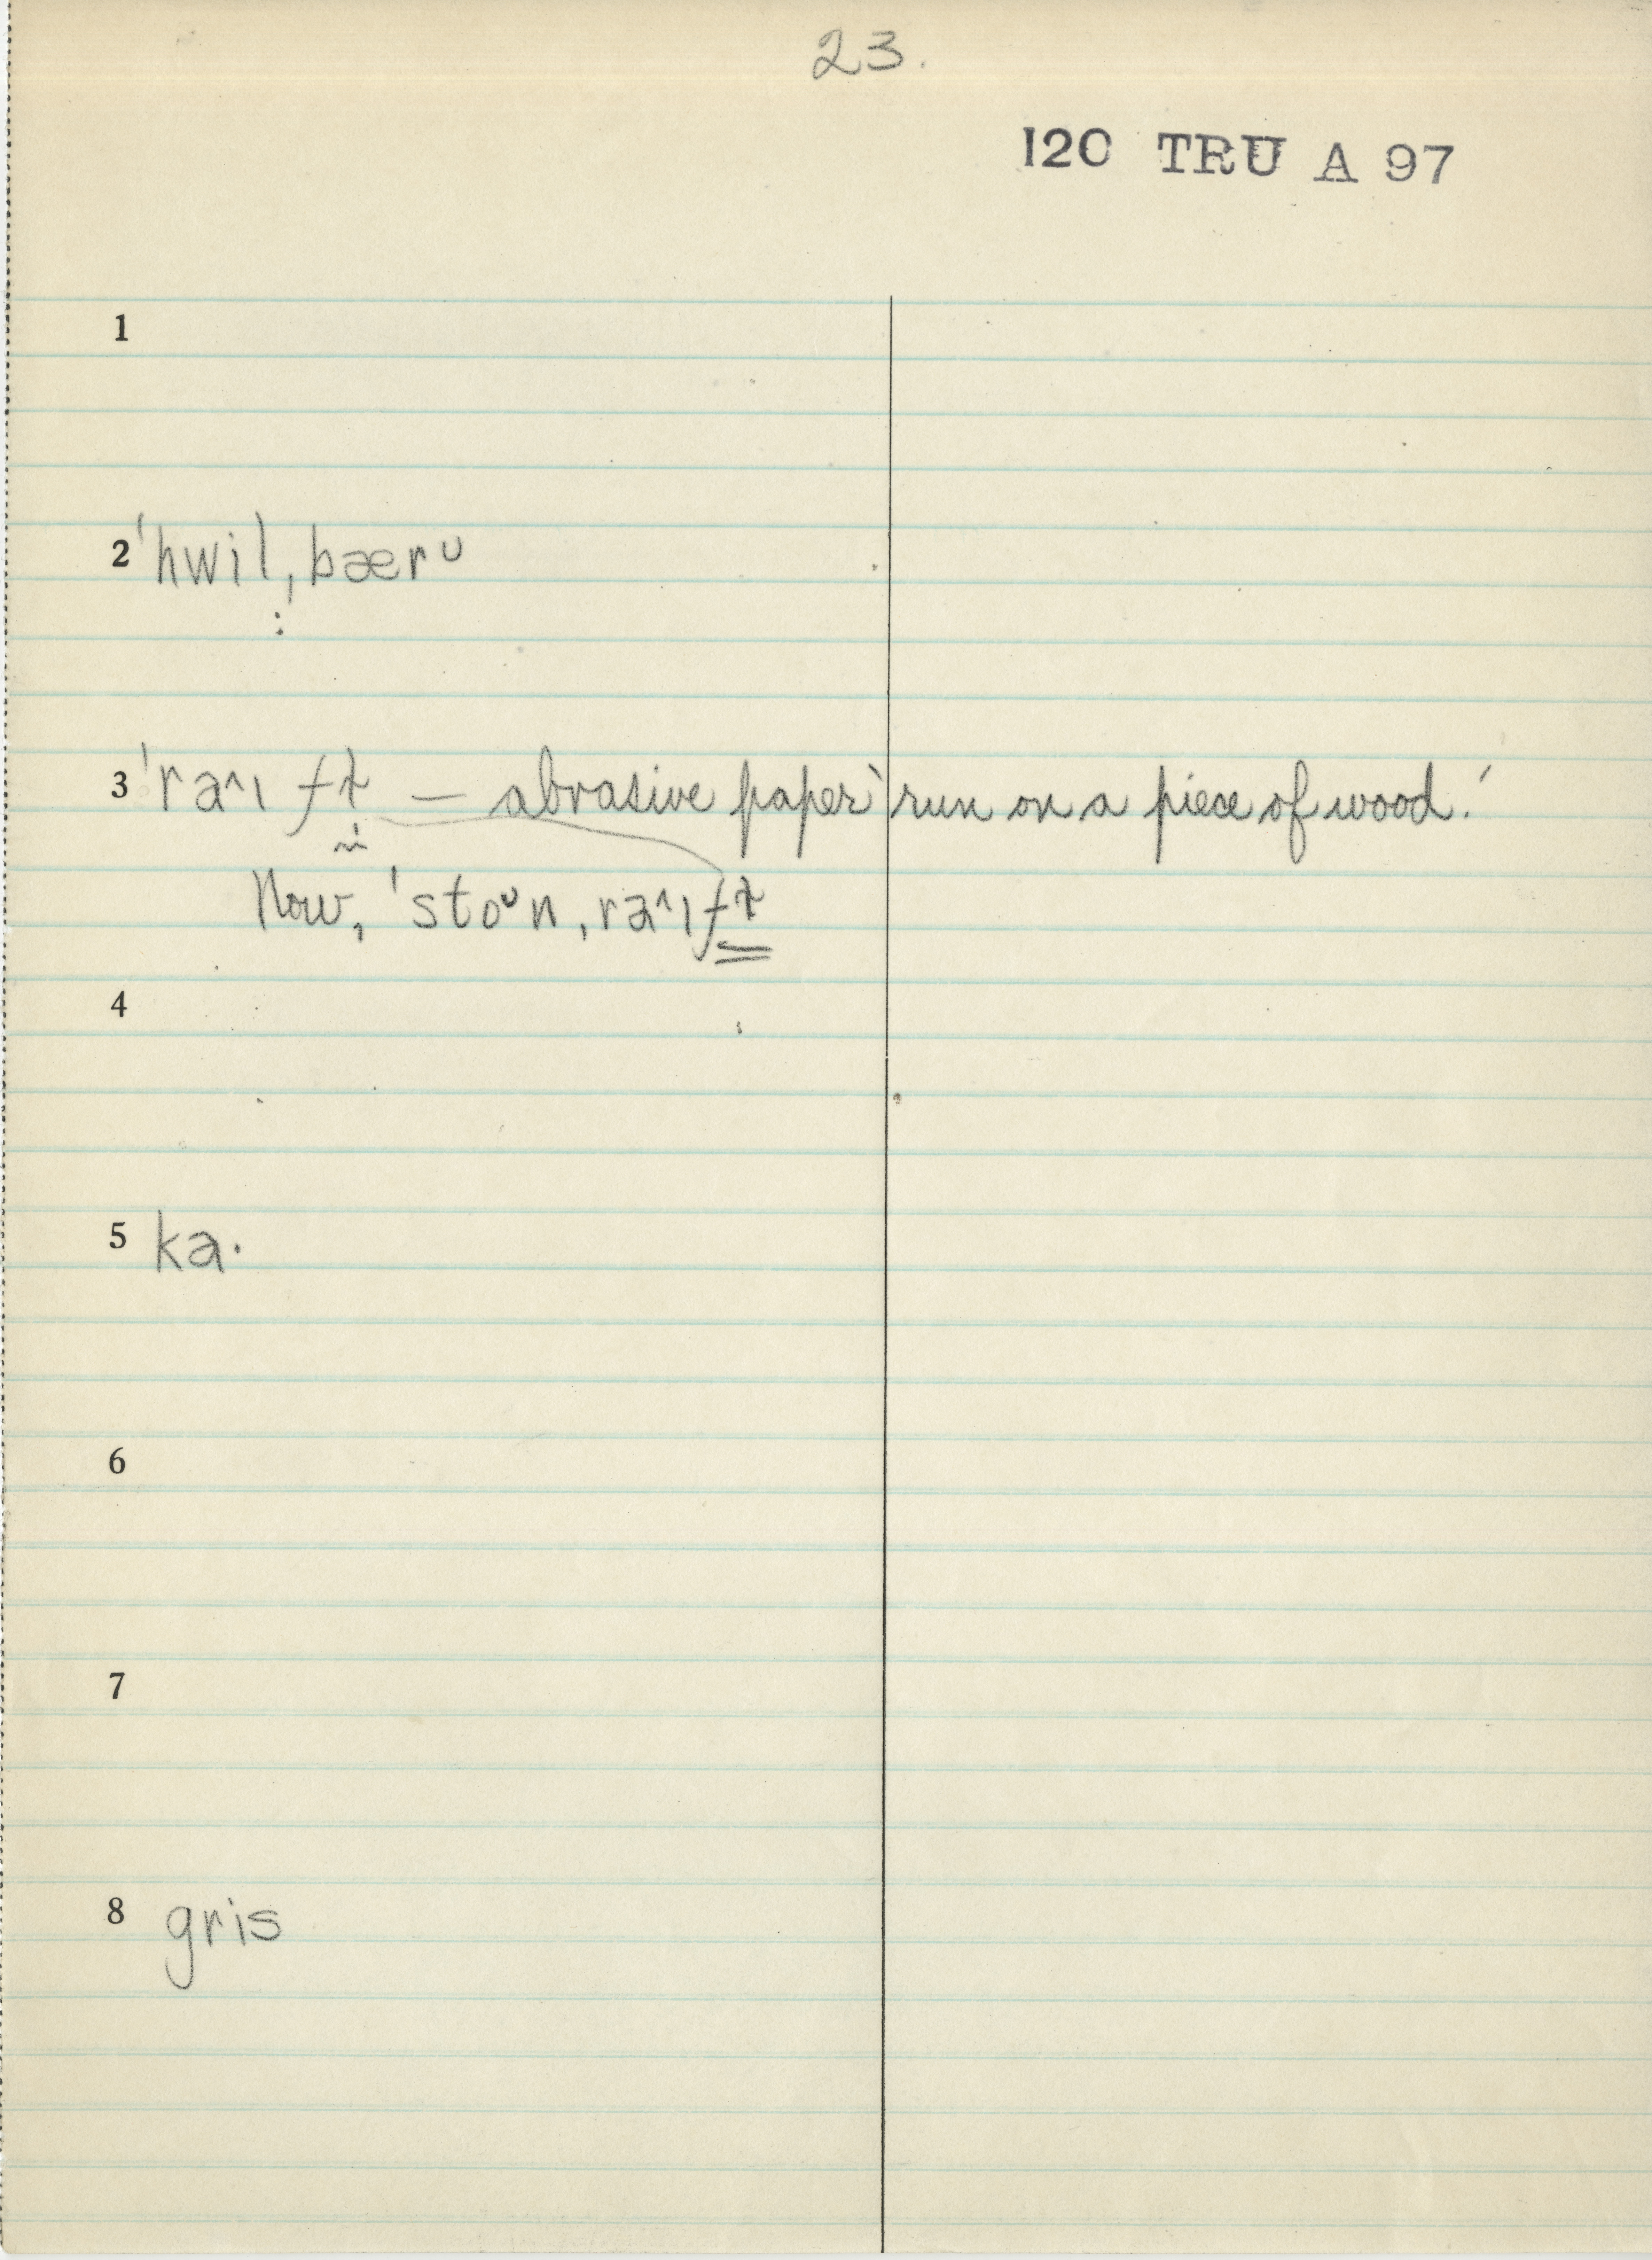 23.
120 TRU A 97
1
2 ˈhwil,bærᴜ
3 ˈraˑ^ɪ ft — abrasive paper 'run on a piece of wood.'
Now, ˈstoᵘn,ra^ɪft
4
5 ka·
6
7
8 gris